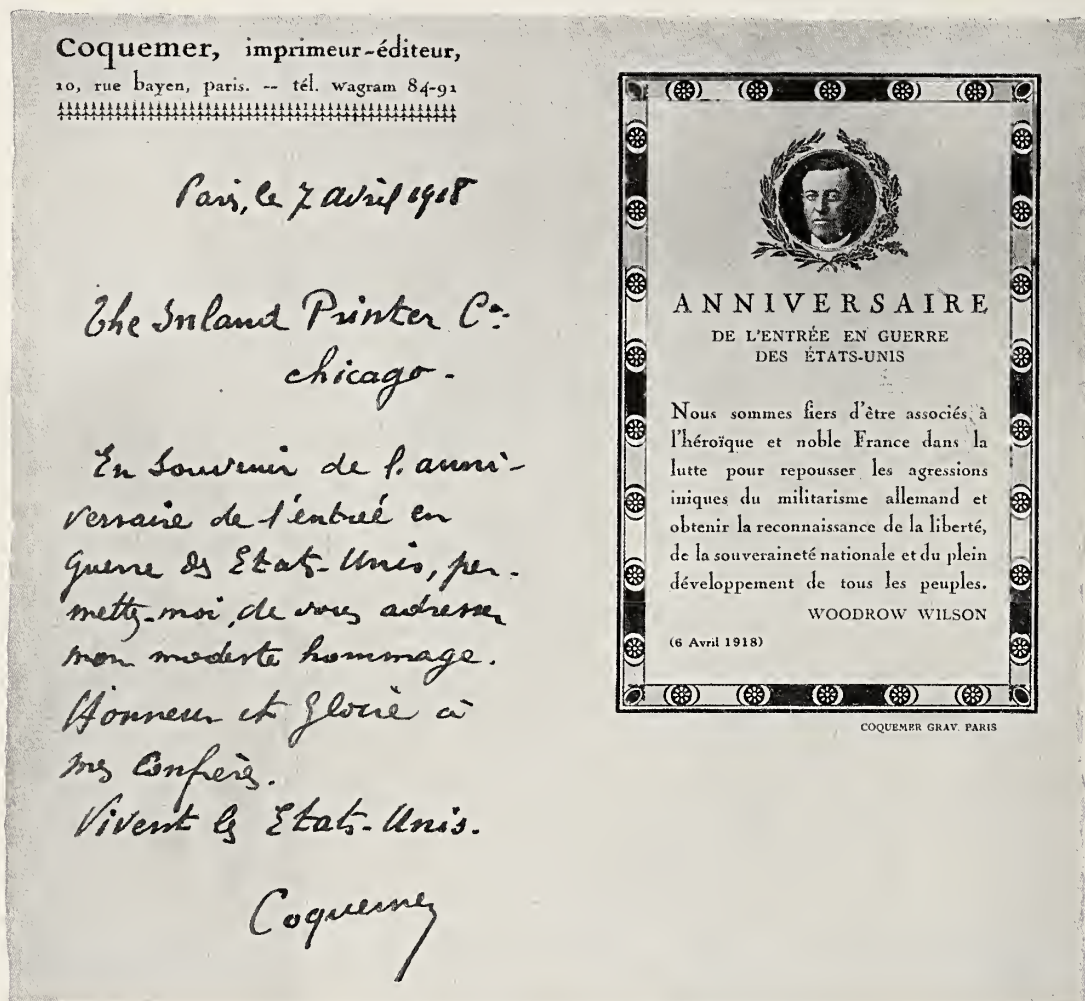 Coquemer, imprimeur-éditeur,
10, rue bayen, paris. -- tél. wagram 84-91
Paris, le 7 avril 1918
The Inland Printer Co.
chicago -
En Souvenir de l'anni-
versaire de l'entrée en
Guerre des Etats-Unis, per-
mettez-moi, de vous adresser
mon modeste hommage.
Honneur et Gloire à
mes Confrères.
Vivent les Etats-Unis.
Coquemer
ANNIVERSAIRE
DE L'ENTRÉE EN GUERRE
DES ÉTATS-UNIS
Nous sommes fiers d'être associés à
l'héroïque et noble France dans la
lutte pour repousser les agressions
iniques du militarisme allemand et
obtenir la reconnaissance de la liberté,
de la souveraineté nationale et du plein
développement de tous les peuples.
WOODROW WILSON
(6 Avril 1918)
COQUEMER GRAV. PARIS